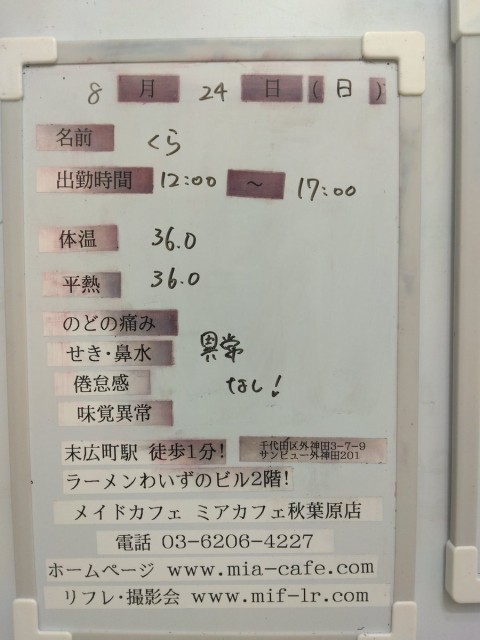 8 月 24 日 (日)
名前 くら
出勤時間 12:00 ～ 17:00
体温 36.0
平熱 36.0
のどの痛み
せき・鼻水 異常
倦怠感 なし!
味覚異常
末広町駅 徒歩1分! 千代田区外神田3-7-9
サンビュー外神田201
ラーメンわいずのビル2階!
メイドカフェ ミアカフェ秋葉原店
電話 03-6206-4227
ホームページ www.mia-cafe.com
リフレ・撮影会 www.mif-lr.com